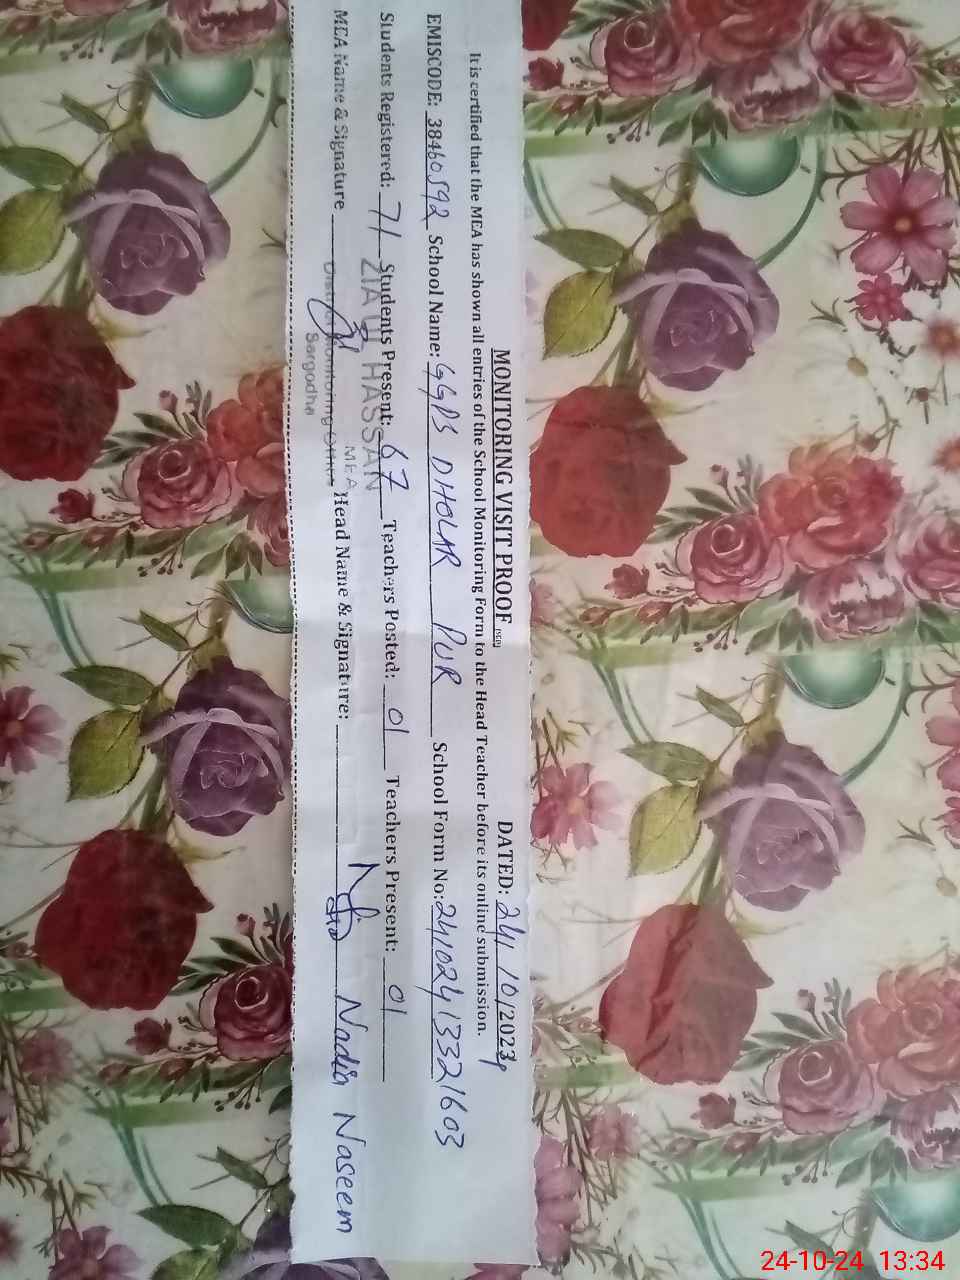 MONITORING VISIT PROOF (PSRP) DATED: 24/10/2024
It is certified that the MEA has shown all entries of the School Monitoring Form to the Head Teacher before its online submission.
EMISCODE: 38460592 School Name: GGPS DHOLAR PUR School Form No: 24102413321603
Students Registered: 71 Students Present: 67 Teachers Posted: 01 Teachers Present: 01
ZIA UL HASSAN
MEA
MEA Name & Signature Head Name & Signature: Nadia Naseem
District Monitoring Office
Sargodha
24-10-24 13:34